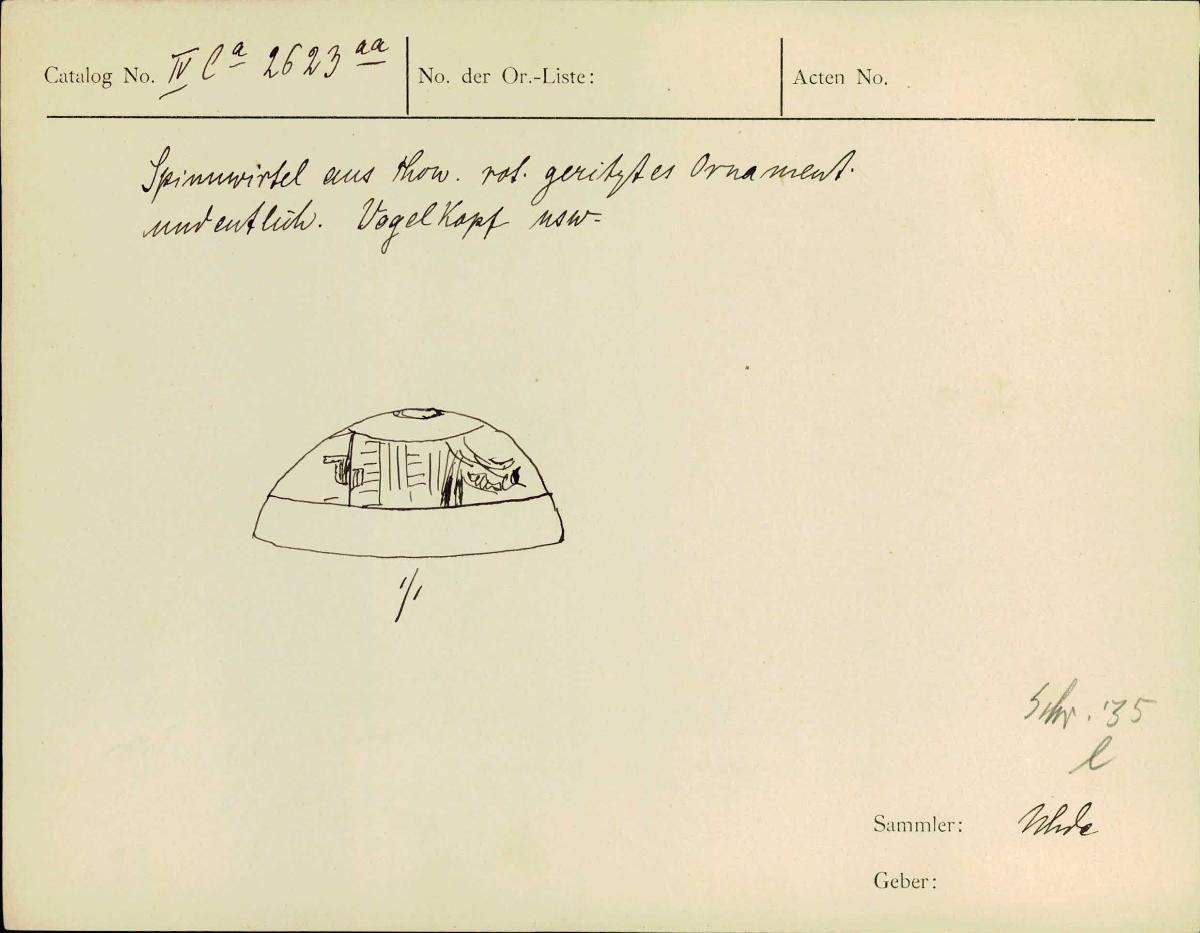 Catalog No. IV Ca 2623 aa No. der Or.-Liste: Acten No.
Spinnwirtel aus Thon. rot. geritztes Ornament.
undeutlich. Vogelkopf usw.
1/1
Schr. '35
l
Sammler: Uhde
Geber: